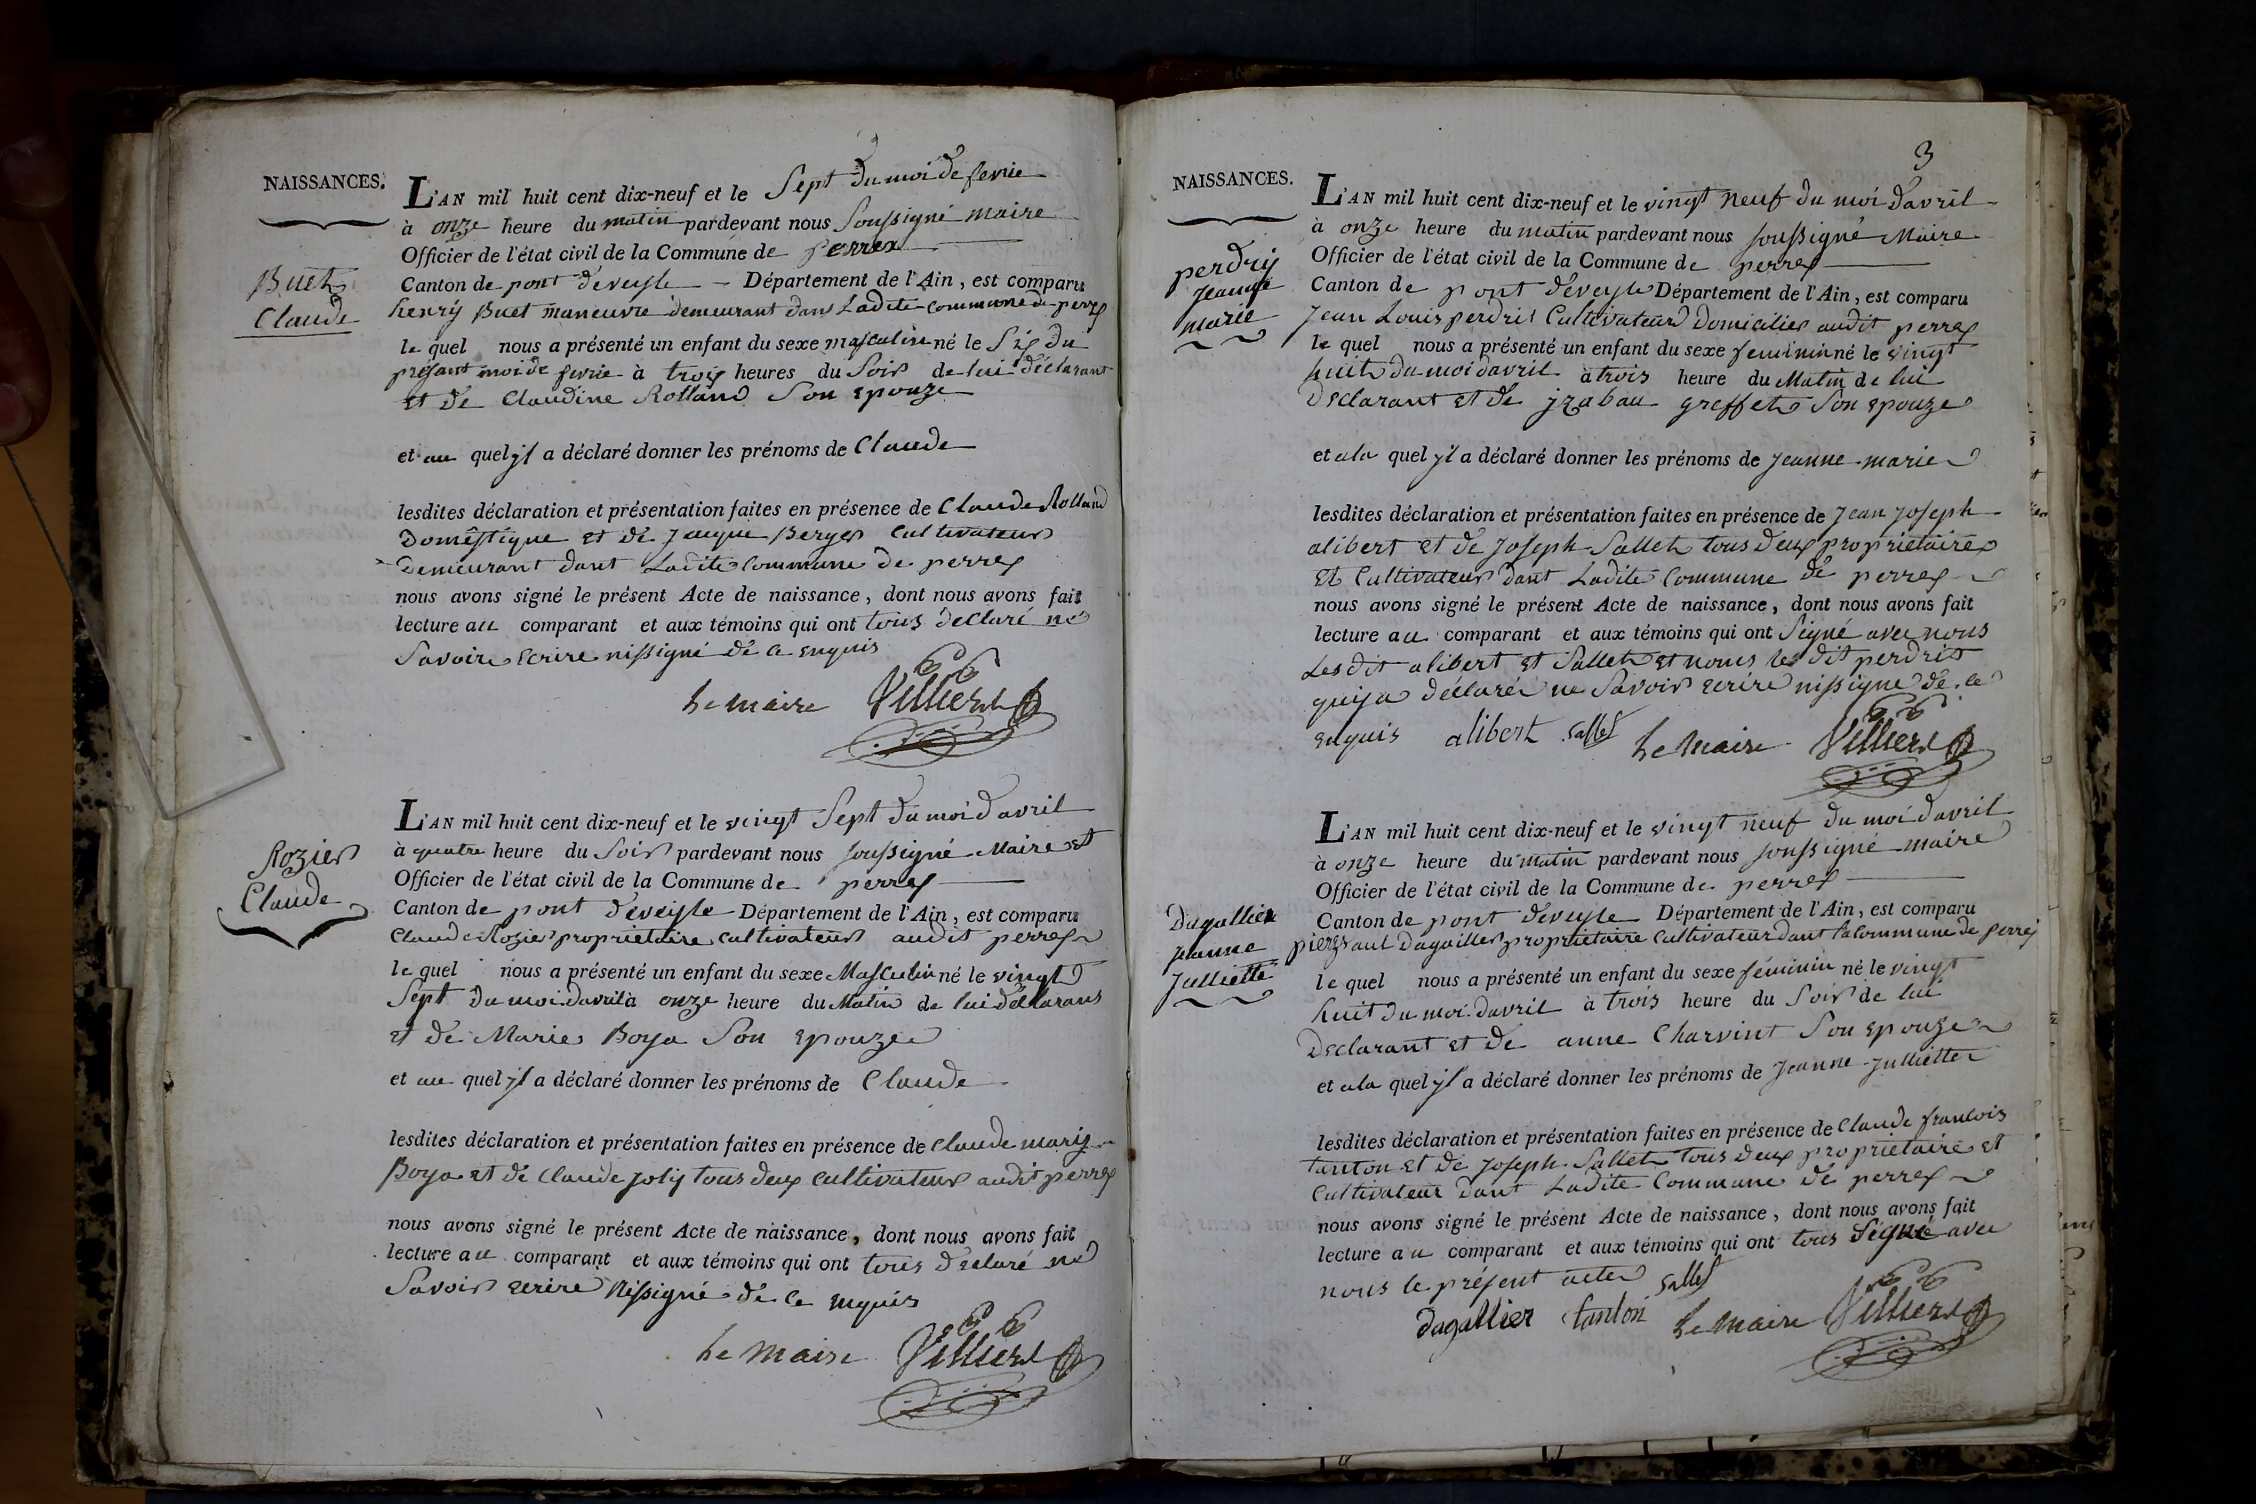 NAISSANCES.
Buet
Claude
L'AN mil huit cent dix-neuf et le Sept du moi de fevrie
à onze heure du matin pardevant nous Soussigné maire
Officier de l'état civil de la Commune de perrex
Canton de pont deveyle Département de l'Ain, est comparu
henry Buet maneuvre demeurant dans Ladite commune de perrex
le quel nous a présenté un enfant du sexe masculin né le Six du
présant moi de fevrie à trois heures du Soir de lui déclarant
et de Claudine Rolland Son epouze
et au quel yl a déclaré donner les prénoms de Claude
lesdites déclaration et présentation faites en présence de Claude Rolland
Domestique et de Jaque Berger Cultivateur
Demeurant dant Ladite commune de perrex
nous avons signé le présent Acte de naissance, dont nous avons fait
lecture au comparant et aux témoins qui ont tous déclaré ne
Savoir ecrire ni signé de ce enquis
Le maire Villierd
Rozier
Claude
L'AN mil huit cent dix-neuf et le vingt Sept du moi d'avril
à quatre heure du Soir pardevant nous soussigné Maire et
Officier de l'état civil de la Commune de perrex
Canton de pont deveyle Département de l'Ain, est comparu
Claude Rozier proprietaire cultivateur audit perrex
le quel nous a présenté un enfant du sexe Masculin né le vingt
Sept du moi davril à onze heure du Matin de lui déclarans
et de Marie Boya Son epouze
et au quel yl a déclaré donner les prénoms de Claude
lesdites déclaration et présentation faites en présence de Claude marij
Boya et de Claude joly tous deux cultivateur audit perrex
nous avons signé le présent Acte de naissance, dont nous avons fait
lecture au comparant et aux témoins qui ont tous declaré ne
Savoir ecrire ni signé de ce enquis
Le Maire Villierd
3
NAISSANCES.
perdrij
jeanne
marie
L'AN mil huit cent dix-neuf et le vingt neuf du moi davril
à onze heure du matin pardevant nous soussigné Maire
Officier de l'état civil de la Commune de perrex
Canton de pont deveyle Département de l'Ain, est comparu
Jean Louis perdrit Cultivateur domicilier audit perrex
le quel nous a présenté un enfant du sexe feminin né le vingt
huit du moi davril à trois heure du Matin de lui
Declarant et de jzabau greffet Son epouze
et ala quel yl a déclaré donner les prénoms de jeanne marie
lesdites déclaration et présentation faites en présence de Jean joseph
alibert et de Joseph Sallet tous deux proprietaire
et Cultivateur dant Ladite Commune de perrex
nous avons signé le présent Acte de naissance, dont nous avons fait
lecture au comparant et aux témoins qui ont Signé avec nous
Lesdit alibert et Sallet et nonus le dit perdrit
qui ja déclaréi ne Savoir ecrire ni signe de ce
enquis alibert sallet Le Maire Villierd
Dagallier
jeanne
Julliette
L'AN mil huit cent dix-neuf et le vingt neuf du moi davril
à onze heure du matin pardevant nous soussigné maire
Officier de l'état civil de la Commune de perrex
Canton de pont deveyle Département de l'Ain, est comparu
Dagaillier proprietaire Cultivateur dant la commune de perrex
le quel nous a présenté un enfant du sexe féminin né le vingt
huit du moi davril à trois heure du Soir de lui
Declarant et de anne Charvint Son epouze
et ala quel yl a déclaré donner les prénoms de Jeanne Julliette
lesdites déclaration et présentation faites en présence de Claude francois
tanton et de Joseph Sallet tous deux proprietaire et
Cultivateur dant Ladite Commune de perrex
nous avons signé le présent Acte de naissance, dont nous avons fait
lecture au comparant et aux témoins qui ont tous Signé avec
nous le présent acte sallet
dagallier tanton Le maire Villierd